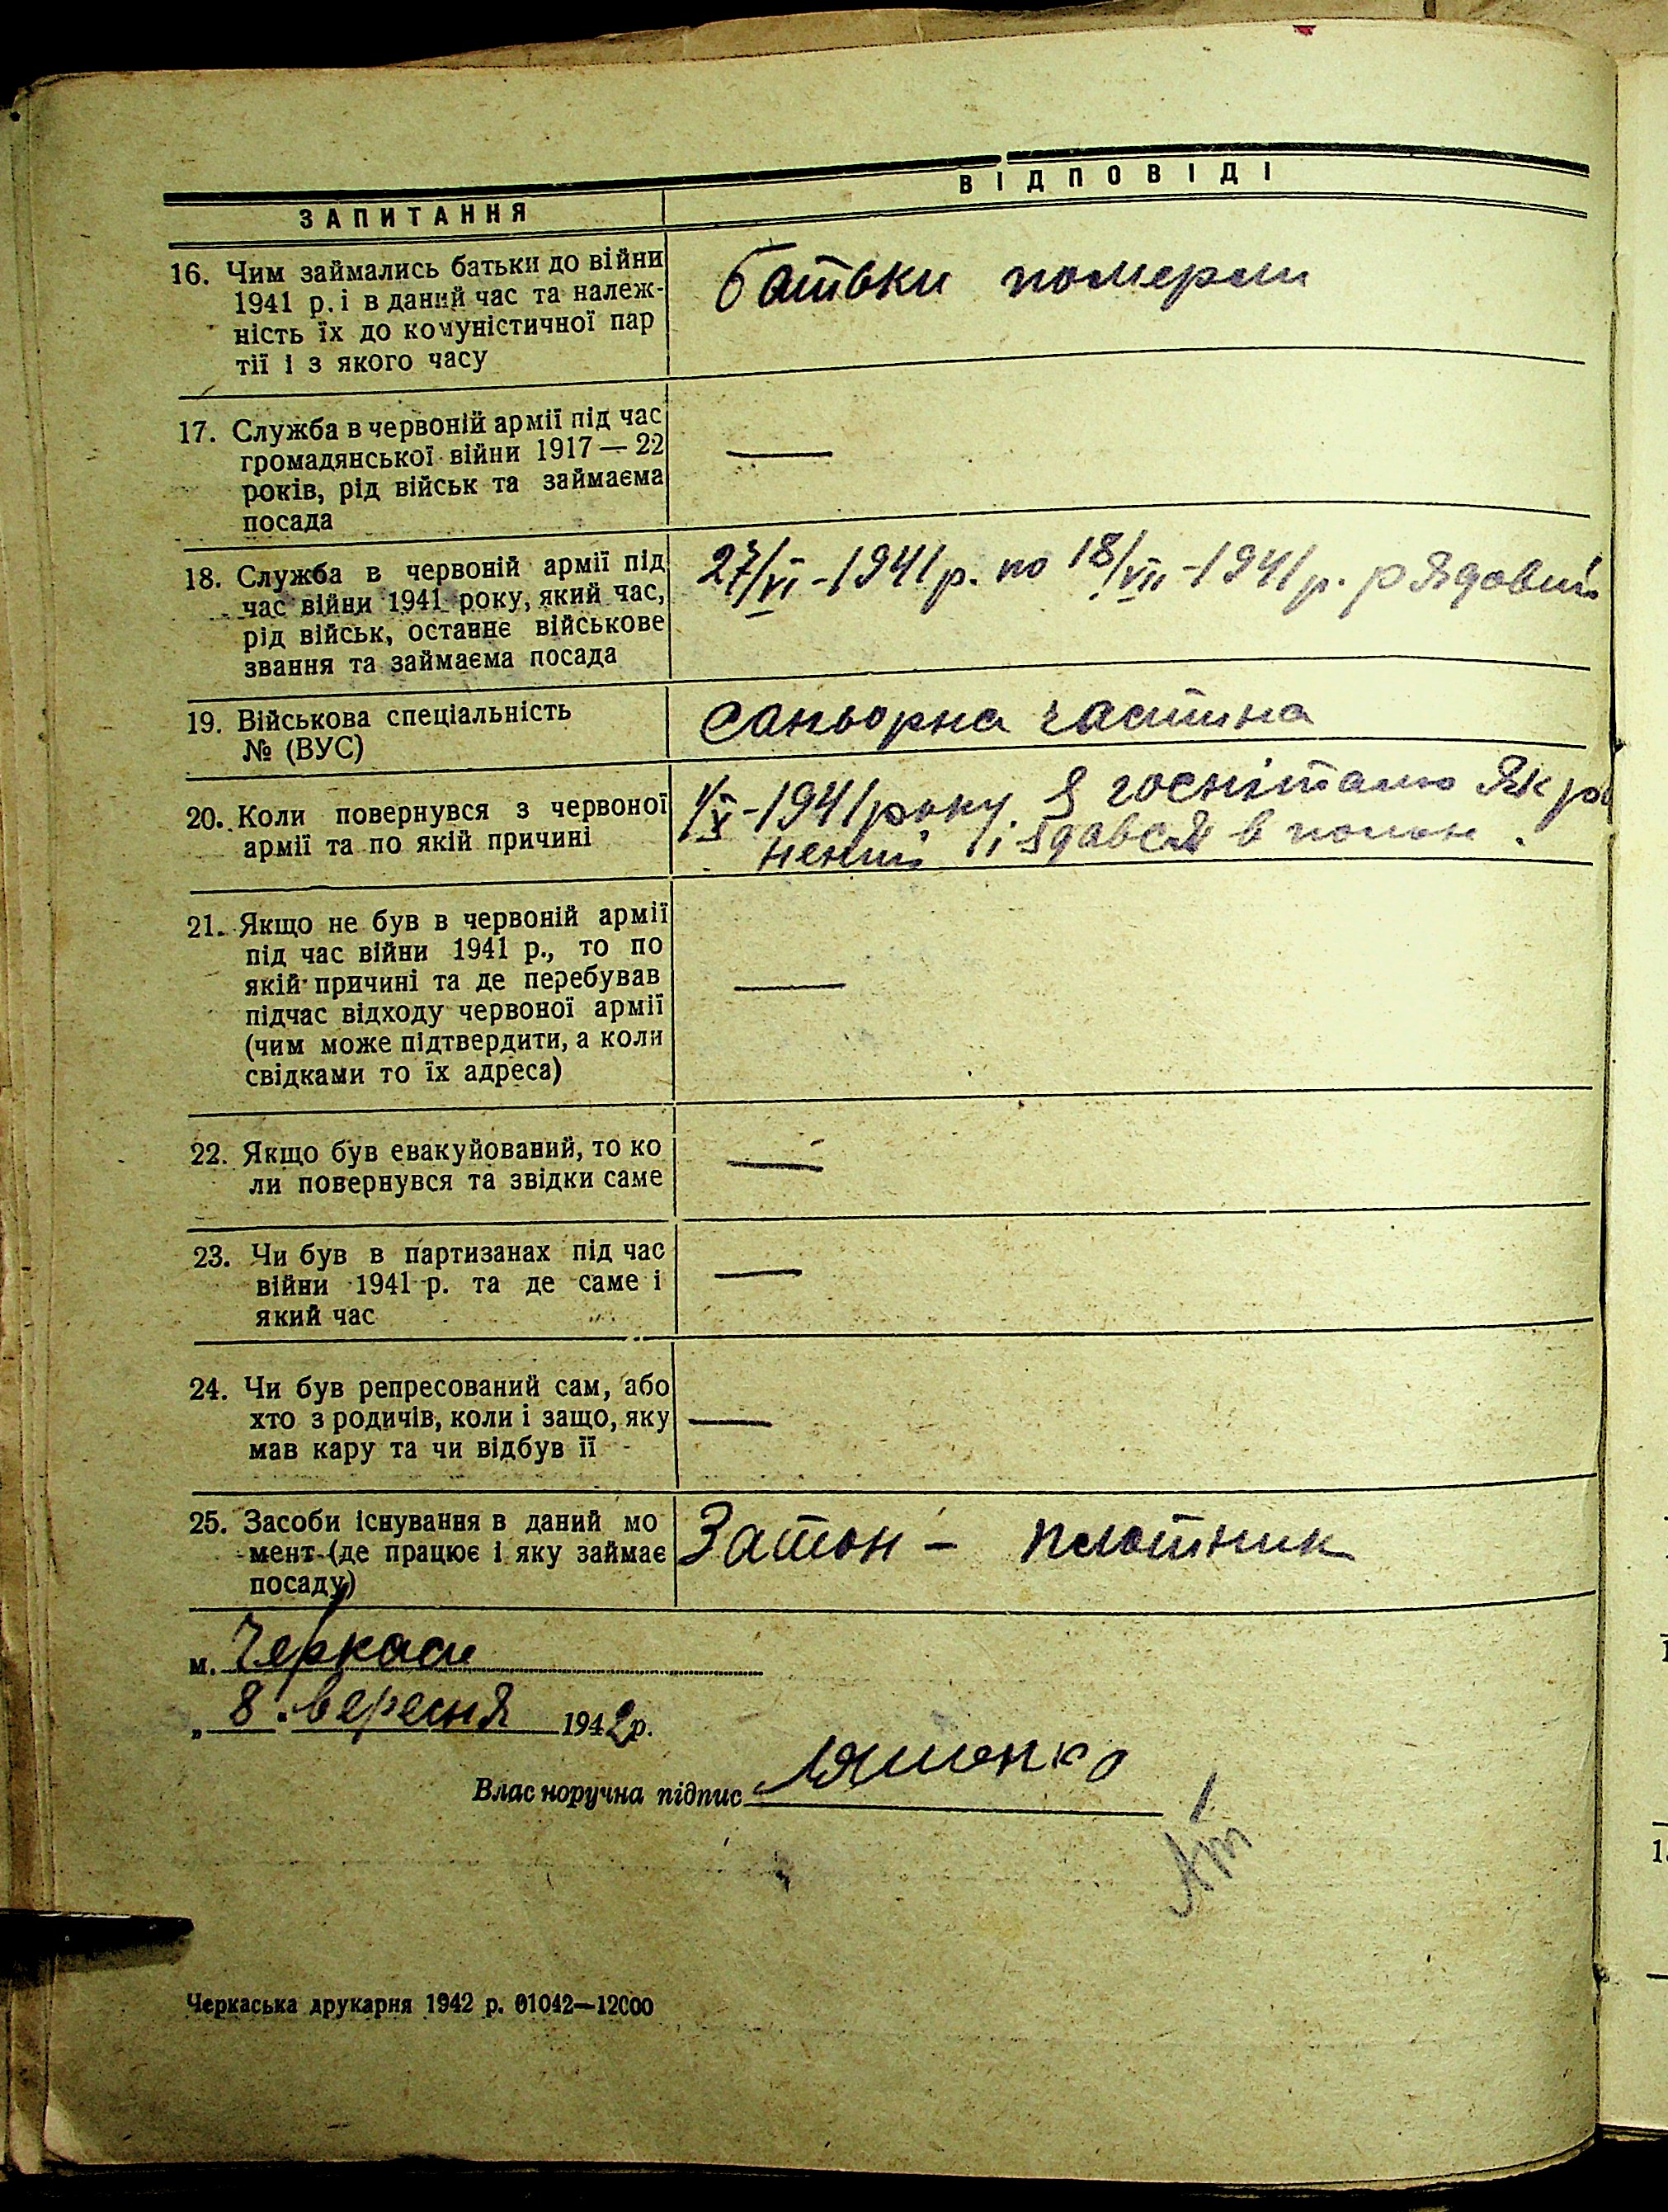 ЗАПИТАННЯ
ВІДПОВІДІ
16. Чим займались батьки до війни
1941 р. і в даний час та належ-
ність їх до комуністичної пар
тії і з якого часу
батьки померли
17. Служба в червоній армії під час
громадянської війни 1917—22
років, рід військ та займаєма
посада
—
18. Служба в червоній армії під
час війни 1941 року, який час,
рід військ, останнє військове
звання та займаєма посада
27/VI-1941р. по 18/VII-1941р. рядовий
19. Військова спеціальність
№ (ВУС)
саньорна частина
20. Коли повернувся з червоної
армії та по якій причині
1/X-1941 року. З госпіталю Як ра
нений і здався в полон.
21. Якщо не був в червоній армії
під час війни 1941 р., то по
якій причині та де перебував
підчас відходу червоної армії
(чим може підтвердити, а коли
свідками то їх адреса)
—
22. Якщо був евакуйований, то ко
ли повернувся та звідки саме
—
23. Чи був в партизанах під час
війни 1941 р. та де саме і
який час
—
24. Чи був репресований сам, або
хто з родичів, коли і защо, яку
мав кару та чи відбув її
—
25. Засоби існування в даний мо
мент (де працює і яку займає
посаду)
Затон - плотник
м. Черкаси
„ 8 . вересня 1942р.
Власноручна підпис
Черкаська друкарня 1942 р. 01042—12000